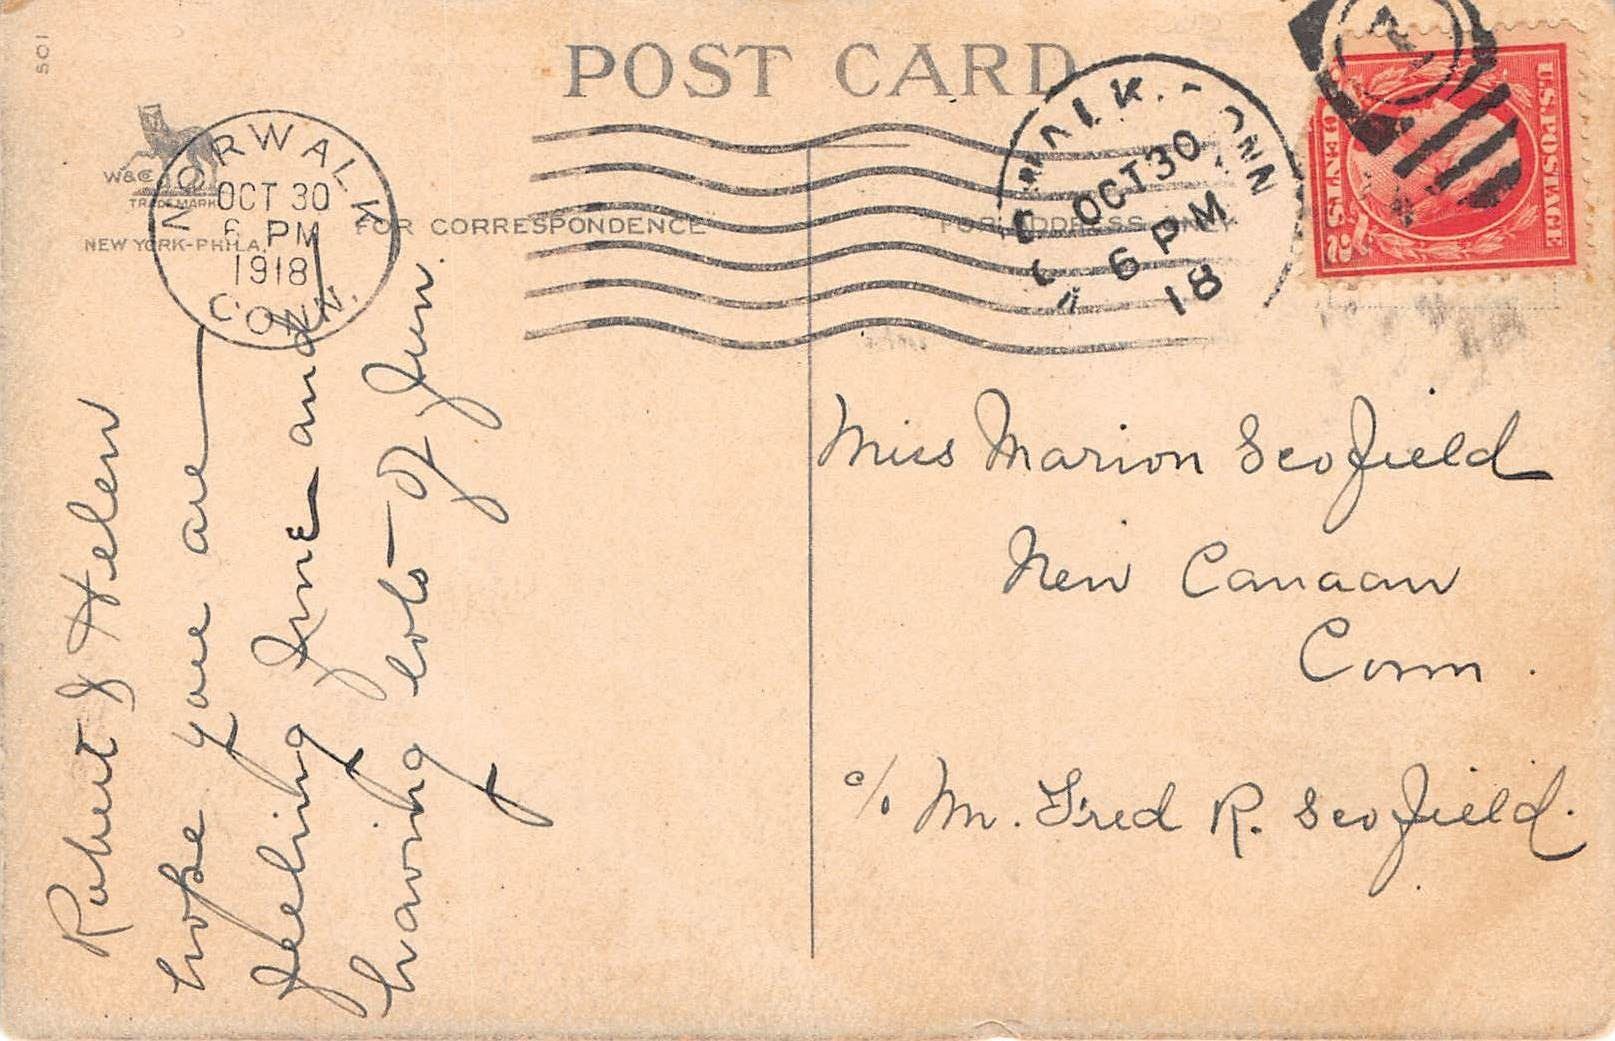 501
POST CARD
W&Co
TRADE MARK
NEW YORK-PHILA.
FOR CORRESPONDENCE
FOR ADDRESS ONLY
NORWALK
OCT 30
6 PM
1918
CONN.
OCT 30
6 PM
18
U.S. POSTAGE
2 CENTS 2
Robert & Helen
hope you are
feeling fine and
having lots of fun.
Miss Marion Scofield
New Canaan
Conn.
c/o Mr. Fred R. Scofield.